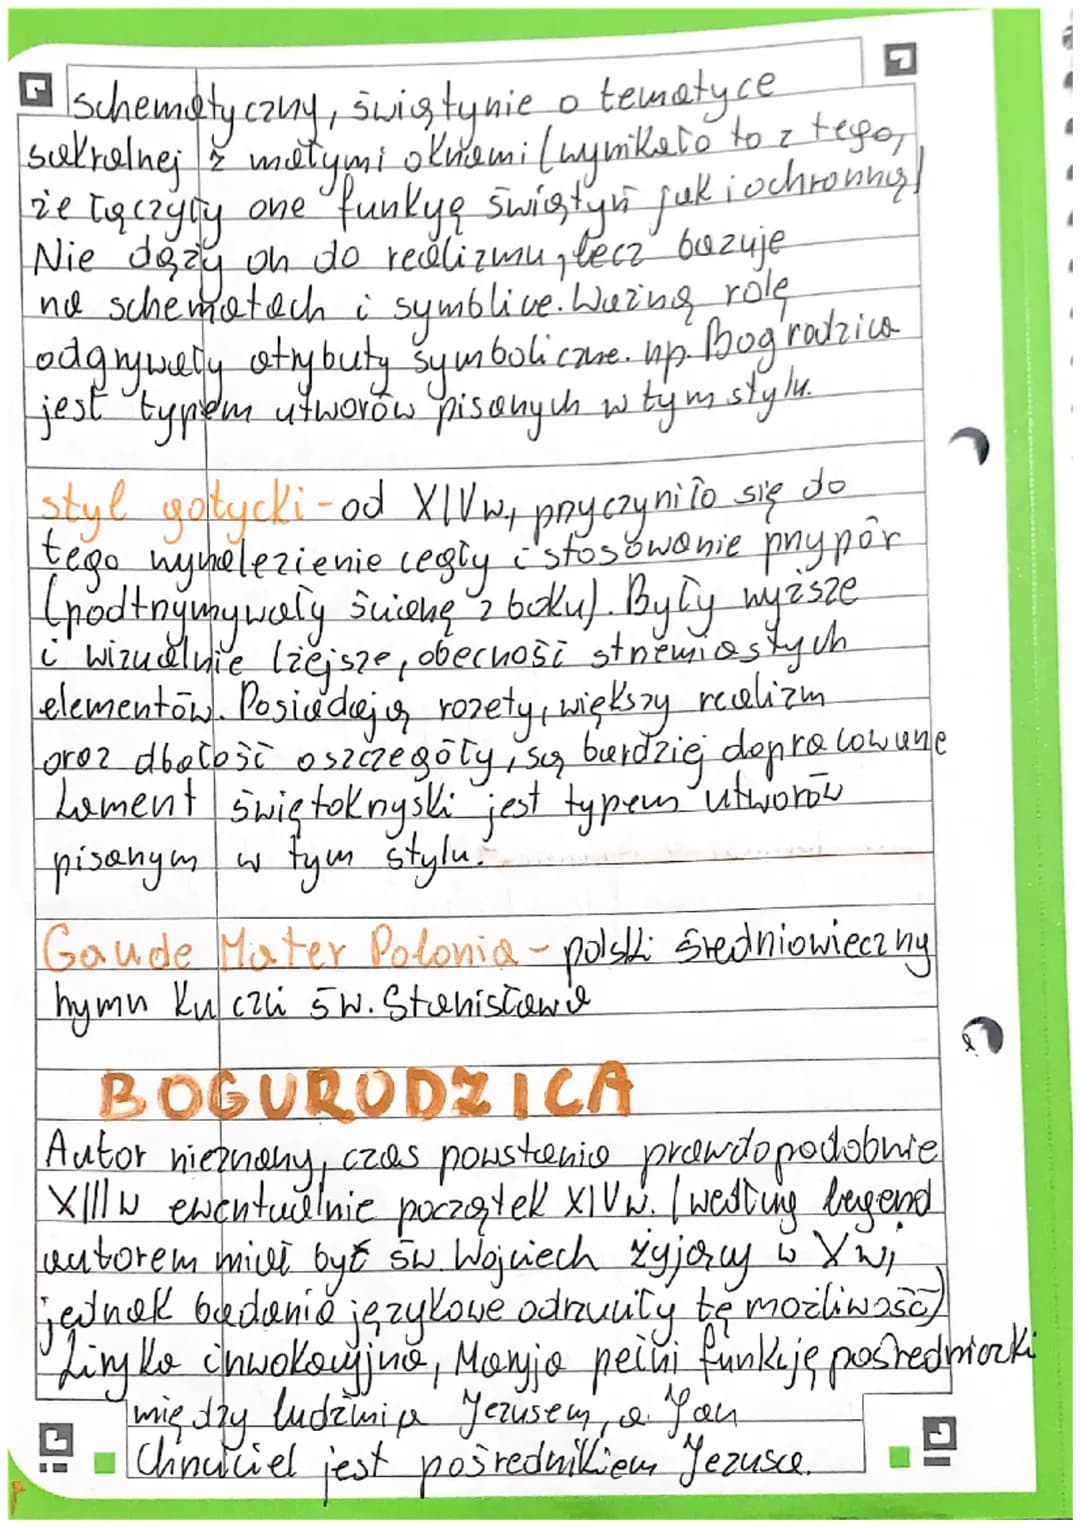 schematyczny, świątynie o tematyce
sakralnej z małymi oknami (wynikało to z tego,
że łączyły one funkyę świątyń jak i ochronną)
Nie dąży on do realizmu, lecz bazuje
na schematach i symblice. Ważną rolę
odgrywały atrybuty symboliczne. np. Bogrodzica
jest typem utworów pisanych w tym stylu.
styl gotycki - od XIV w, przyczyniło się do
tego wynalezienie cegły i stosowanie przypór
(podtrzymywały ścianę z boku). Były wyższe
i wizualnie lżejsze, obecność strzemiastych
elementów. Posiadają rozety, większy realizm
oraz dbałość o szczegóły, są bardziej dopracowane
Lament świętokrzyski jest typem utworów
pisanym w tym stylu.
Gaude Mater Polonia - polski średniowieczny
hymn ku czci św. Stanisława
BOGURODZICA
Autor nieznany, czas powstania prawdopodobnie
XIII w ewentualnie początek XIV w. (według legend
autorem miał być św. Wojciech żyjący w X w,
jednak badania językowe odrzuciły tę możliwość)
Liryka inwokacyjna, Maryja pełni funkję pośredniczki
między ludźmi a Jezusem, a Jan
Chrzciciel jest pośrednikiem Jezusa.